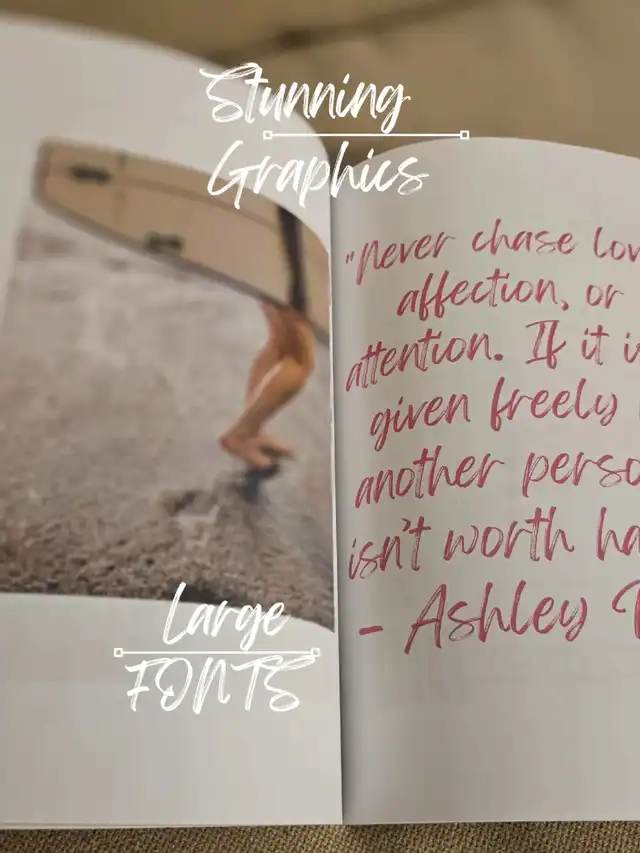 Stunning
Graphics
"Never chase
affection, or
attention. If it
given freely
another
isn't worth
- Ashley
Large
FONTS